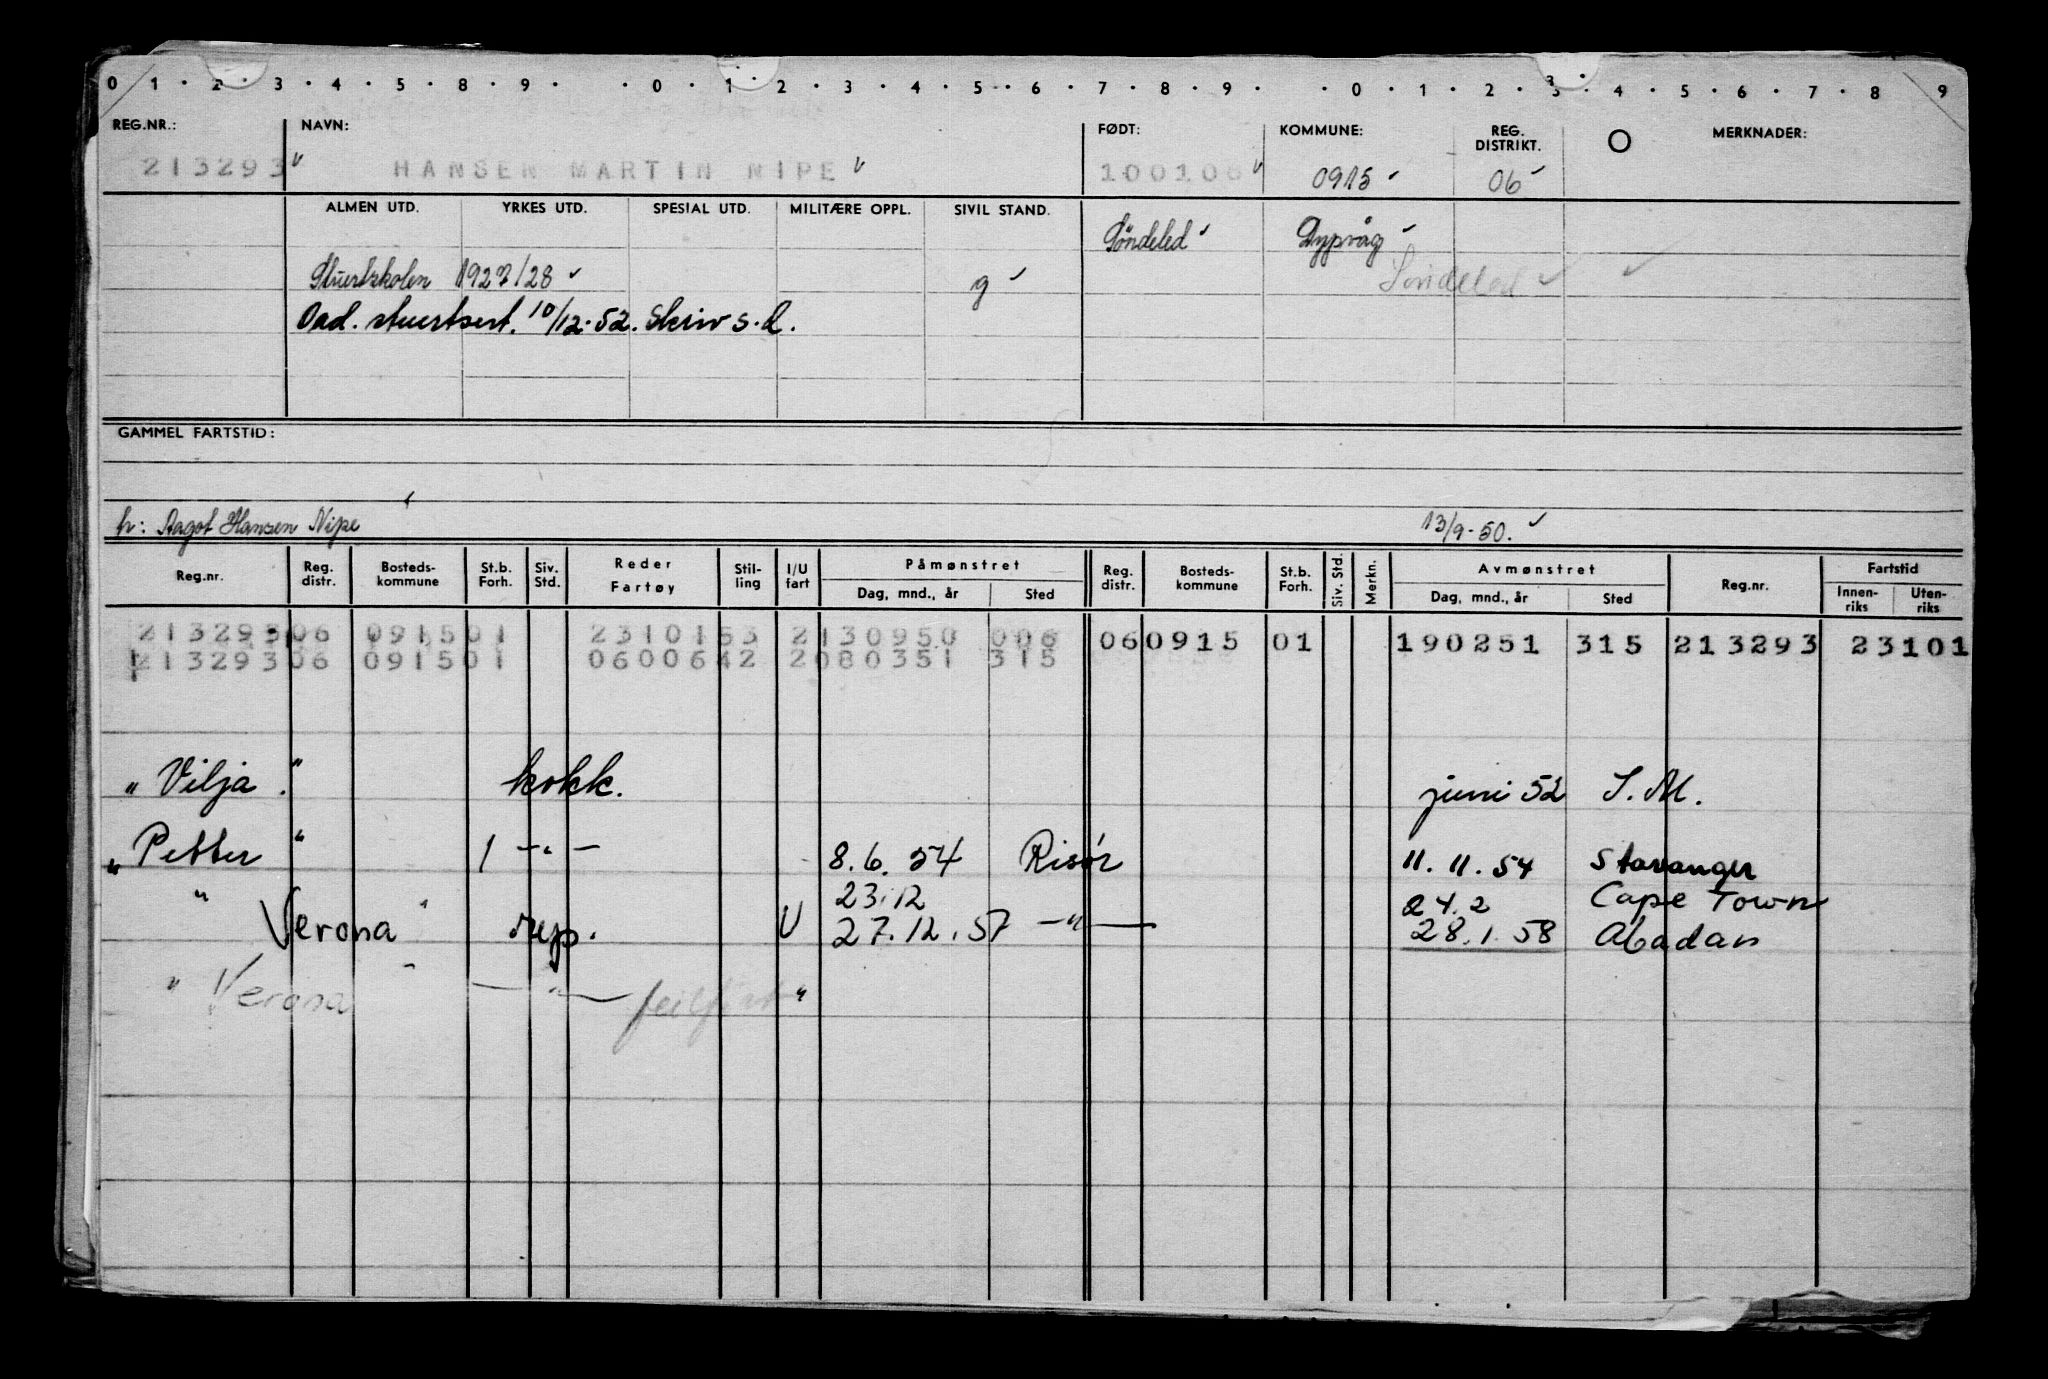 0 1 · 2 · 3 · 4 · 5 · 8 · 9 · · 0 · 1 · 2 · 3 · 4 · 5 · 6 · 7 · 8 · 9 · · 0 · 1 · 2 · 3 · 4 · 5 · 6 · 7 · 8 9
REG.NR.: NAVN: FØDT: KOMMUNE: REG. DISTRIKT. MERKNADER:
213293 HANSEN MARTIN NIPE 100106 0915 06
ALMEN UTD. YRKES UTD. SPESIAL UTD. MILITÆRE OPPL. SIVIL STAND.
Söndeled Dypvåg
Stuertskolen 1927/28 g Söndeled
Oad. stuertsert. 10/12.52. Skriv s.d.
GAMMEL FARTSTID:
h: Aagot Hansen Nipe 13/9-50.
Reg.nr. Reg. distr. Bosteds- kommune St.b. Forh. Siv. Std. Reder Fartøy Stil- ling I/U fart Påmønstret Dag, mnd., år Sted Reg. distr. Bosteds- kommune St.b. Forh. Siv. Std. Merkn. Avmønstret Dag, mnd., år Sted Reg.nr. Fartstid Innen- riks Uten- riks
213293 06 0915 01 2310153 2 130950 006 06 0915 01 190251 315 213293 23101
213293 06 0915 01 0600642 2 080351 315
"Vilja." kokk. juni 52 S.M.
"Petter" 1 -"- 8.6.54 Risör 11.11.54 Stavanger
23.12 24.2 Cape Town
"Verona" rep. U 27.12.57 -"- 28.1.58 Abadan
"Verona" -"- feilført "